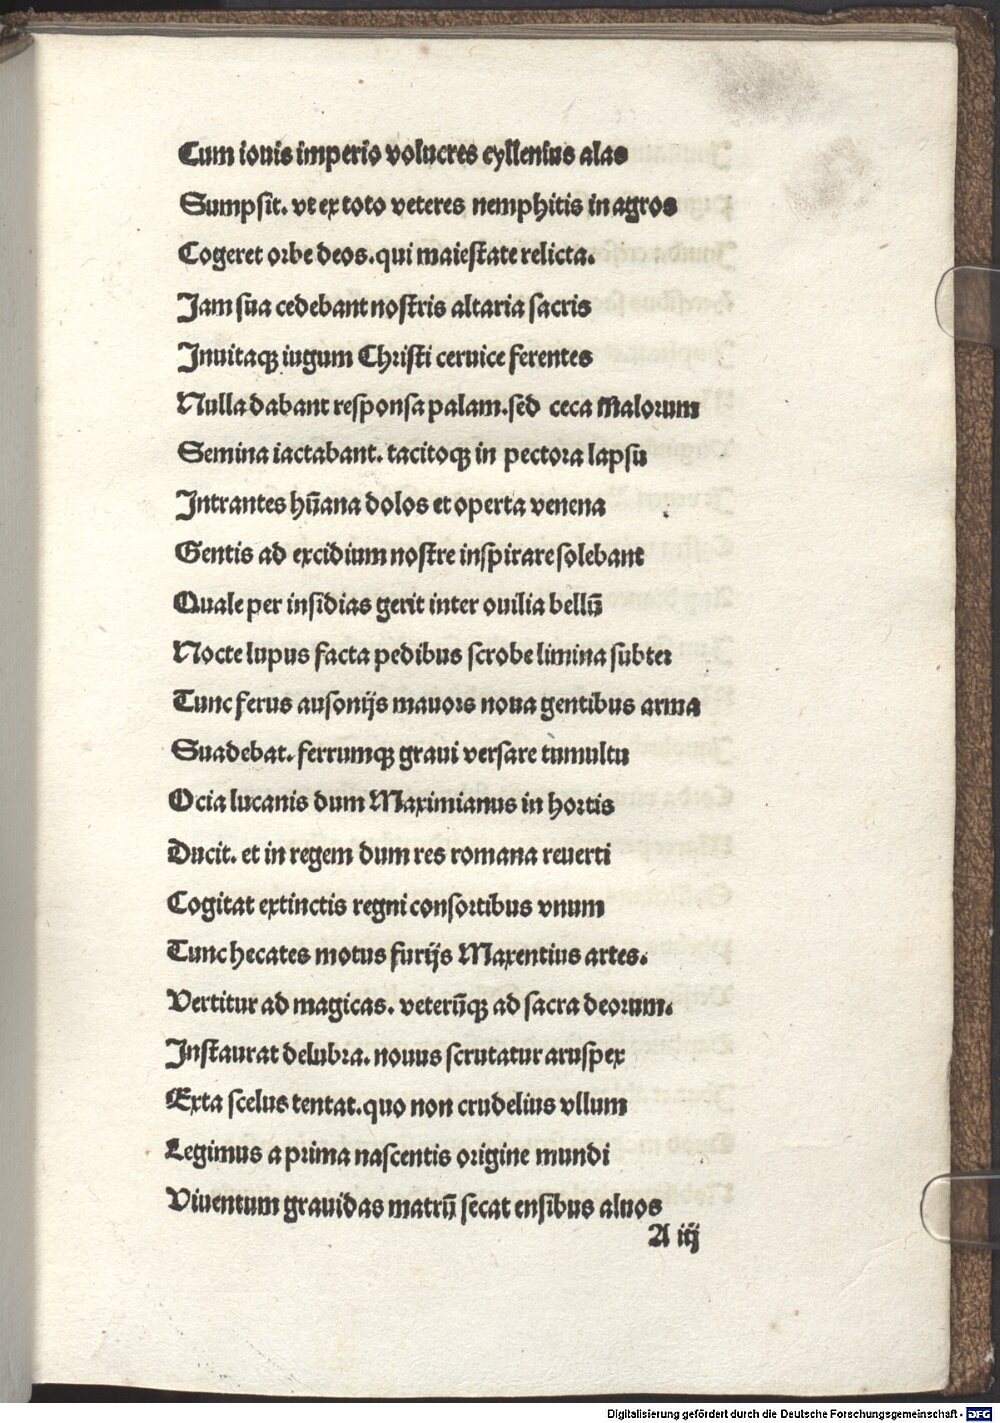 Cum iouis imperio volucres cyllenius alas
Sumpsit. vt ex toto veteres nemphitis in agros
Cogeret orbe deos. qui maiestate relicta.
Jam sua cedebant nostris altaria sacris
Jnuitaqꝫ iugum Christi ceruice ferentes
Nulla dabant responsa palam. sed ceca Malorum
Semina iactabant. tacitoqꝫ in pectora lapsu
Jntrantes hūana dolos et operta venena
Gentis ad excidium nostre inspirare solebant
Quale per insidias gerit inter ouilia bellū
Nocte lupus facta pedibus scrobe limina subter
Tunc ferus ausonijs mauors noua gentibus arma
Suadebat. ferrumqꝫ graui versare tumultu
Ocia lucanis dum Maximianus in hortis
Ducit. et in regem dum res romana reuerti
Cogitat extinctis regni consortibus vnum
Tunc hecates motus furijs Maxentius artes.
Vertitur ad magicas. veterūqꝫ ad sacra deorum.
Jnstaurat delubra. nouus scrutatur aruspex
Exta scelus tentat. quo non crudelius vllum
Legimus a prima nascentis origine mundi
Viuentum grauidas matrū secat ensibus aluos
A iij
Digitalisierung gefördert durch die Deutsche Forschungsgemeinschaft - DFG